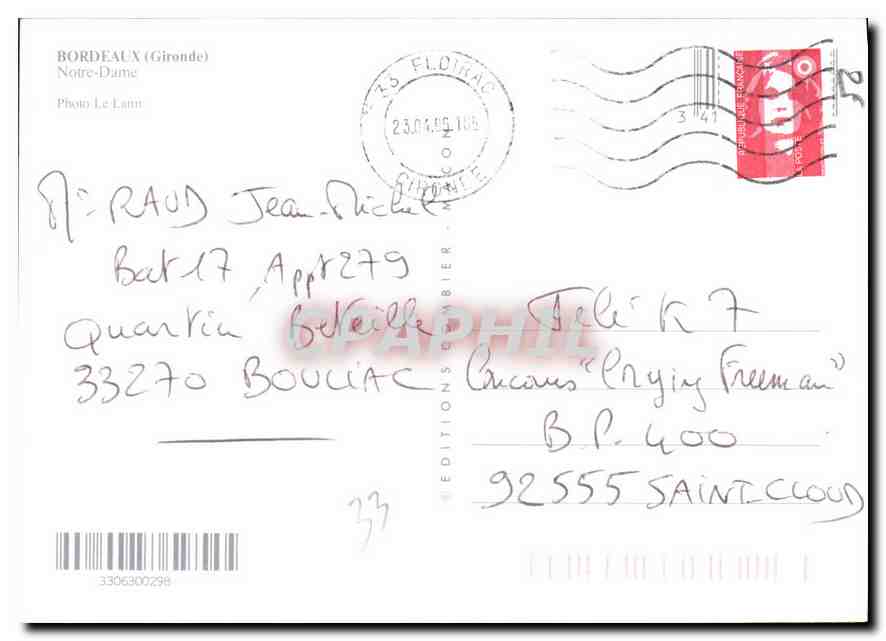 BORDEAUX (Gironde)
Notre-Dame
Photo Le Lann
33 FLOIRAC
23.04.96.18h
GIRONDE
3 41
REPUBLIQUE FRANCAISE
LA POSTE
Mr RAUD Jean-Michel
Bat 17, Appt 279
Quartier Beteille
33270 BOULIAC
CPAPHIL
Télé K 7
Concours "Crying Freeman"
B.P. 400
92555 SAINT-CLOUD
©EDITIONS COMBIER - MACON
33
3306300298